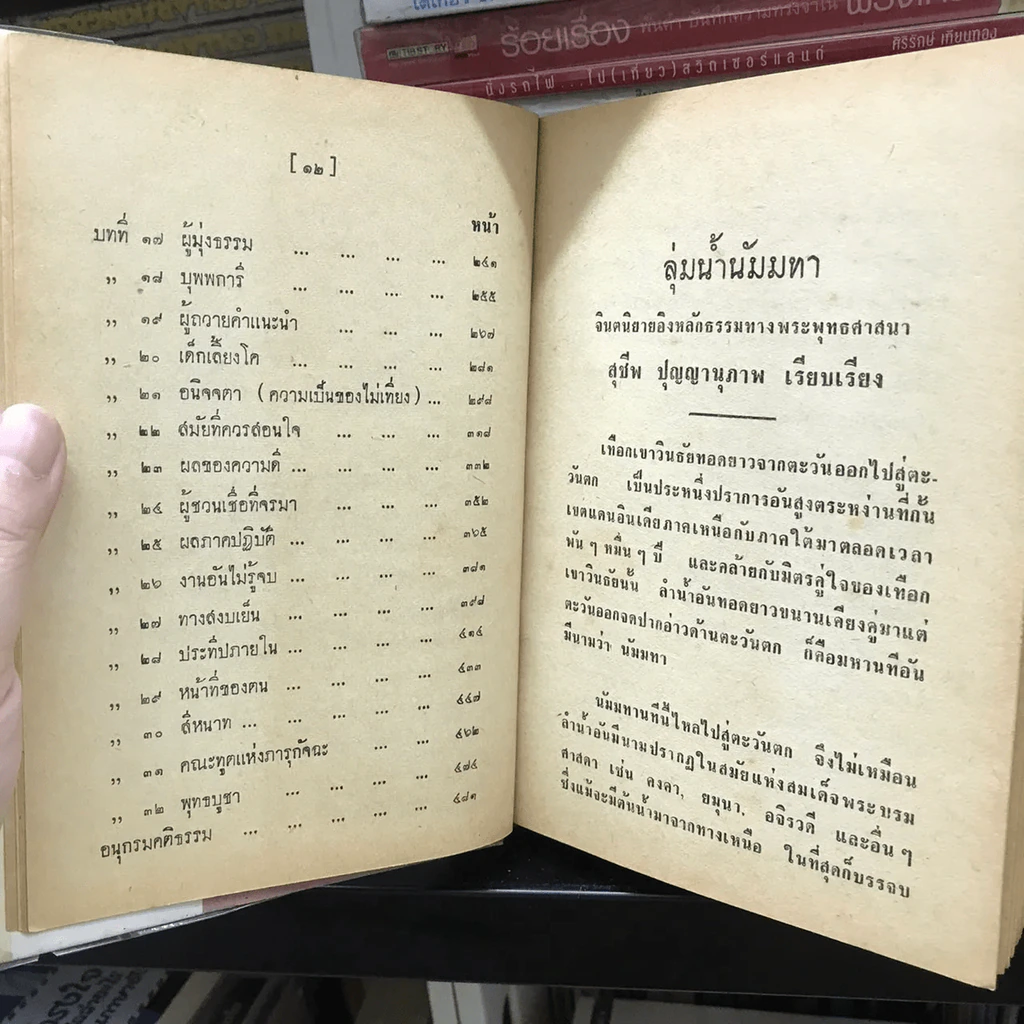 ร้อยเรื่อง
นั่งรถไฟ...ไป(เที่ยว)สวิตเซอร์แลนด์
ศิริรักษ์ เทียนทอง
[ ๑๒ ]
หน้า
บทที่ ๑๗ ผู้มุ่งธรรม ... ... ... ... ๒๔๑
,, ๑๘ บุพพการี ... ... ... ... ๒๕๕
,, ๑๙ ผู้ถวายคำแนะนำ ... ... ... ๒๖๗
,, ๒๐ เด็กเลี้ยงโค ... ... ... ... ๒๘๑
,, ๒๑ อนิจจตา (ความเป็นของไม่เที่ยง) ... ๒๙๘
,, ๒๒ สมัยที่ควรสอนใจ ... ... ... ๓๑๘
,, ๒๓ ผลของความดี ... ... ... ... ๓๓๒
,, ๒๔ ผู้ชวนเชื่อที่จรมา ... ... ... ๓๕๒
,, ๒๕ ผลภาคปฏิบัติ ... ... ... ... ๓๖๕
,, ๒๖ งานอันไม่รู้จบ ... ... ... ... ๓๘๑
,, ๒๗ ทางสงบเย็น ... ... ... ... ๓๙๘
,, ๒๘ ประทีปภายใน ... ... ... ... ๔๑๔
,, ๒๙ หน้าที่ของตน ... ... ... ... ๔๓๓
,, ๓๐ สีหนาท ... ... ... ... ๔๔๗
,, ๓๑ คณะทูตแห่งภารุกัจฉะ ... ... ๔๖๒
,, ๓๒ พุทธบูชา ... ... ... ... ๔๗๔
อนุกรมคติธรรม ... ... ... ... ... ๔๘๑
ลุ่มน้ำนัมมทา
จินตนิยายอิงหลักธรรมทางพระพุทธศาสนา
สุชีพ ปุญญานุภาพ เรียบเรียง
เทือกเขาวินธัยทอดยาวจากตะวันออกไปสู่ตะ-
วันตก เป็นประหนึ่งปราการอันสูงตระหง่านที่กั้น
เขตแดนอินเดียภาคเหนือกับภาคใต้มาตลอดเวลา
พัน ๆ หมื่น ๆ ปี และคล้ายกับมิตรคู่ใจของเทือก
เขาวินธัยนั้น ลำน้ำอันทอดยาวขนานเคียงคู่มาแต่
ตะวันออกจดปากอ่าวด้านตะวันตก ก็คือมหานทีอัน
มีนามว่า นัมมทา
นัมมทานทีนี้ไหลไปสู่ตะวันตก จึงไม่เหมือน
ลำน้ำอันมีนามปรากฏในสมัยแห่งสมเด็จพระบรม
ศาสดา เช่น คงคา, ยมุนา, อจิรวดี และอื่น ๆ
ซึ่งแม้จะมีต้นน้ำมาจากทางเหนือ ในที่สุดก็บรรจบ